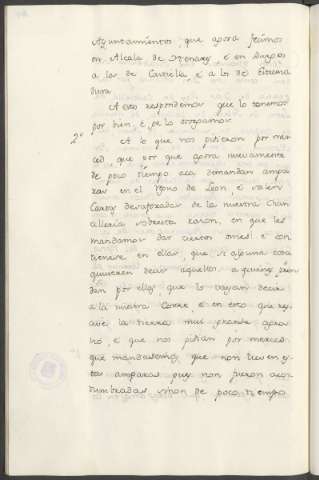 Ayuntamientos, que agora fecimos
en Alcala de Henares, e en Burgos
a los de Castiella, e a los de Estrema
dura.
A esto respondemos que lo tenemos
por bien, e ge lo otorgamos.
2º A lo que nos pidieron por mer
ced, que por que agora nuevamente
de poco tiempo aca demandan ampa
ras en el Regno de Leon, e salen
Cartas desaforadas de la nuestra Chan
cilleria sobresta razon, en que les
mandamos dar ciertos omes, e con
tienese en ellas, que si alguna cosa
quisieren decir aquellos, a quien, 
dan por ellas que lo vayan decir
a la nuestra Corte, e en esto que res
cibe la tierra muy grande agra
vio, e que nos pidian por merced
que mandasemos, que non usen en es
tas amparas, pues non fueron acos
tumbradas, sinon de poco tiempo